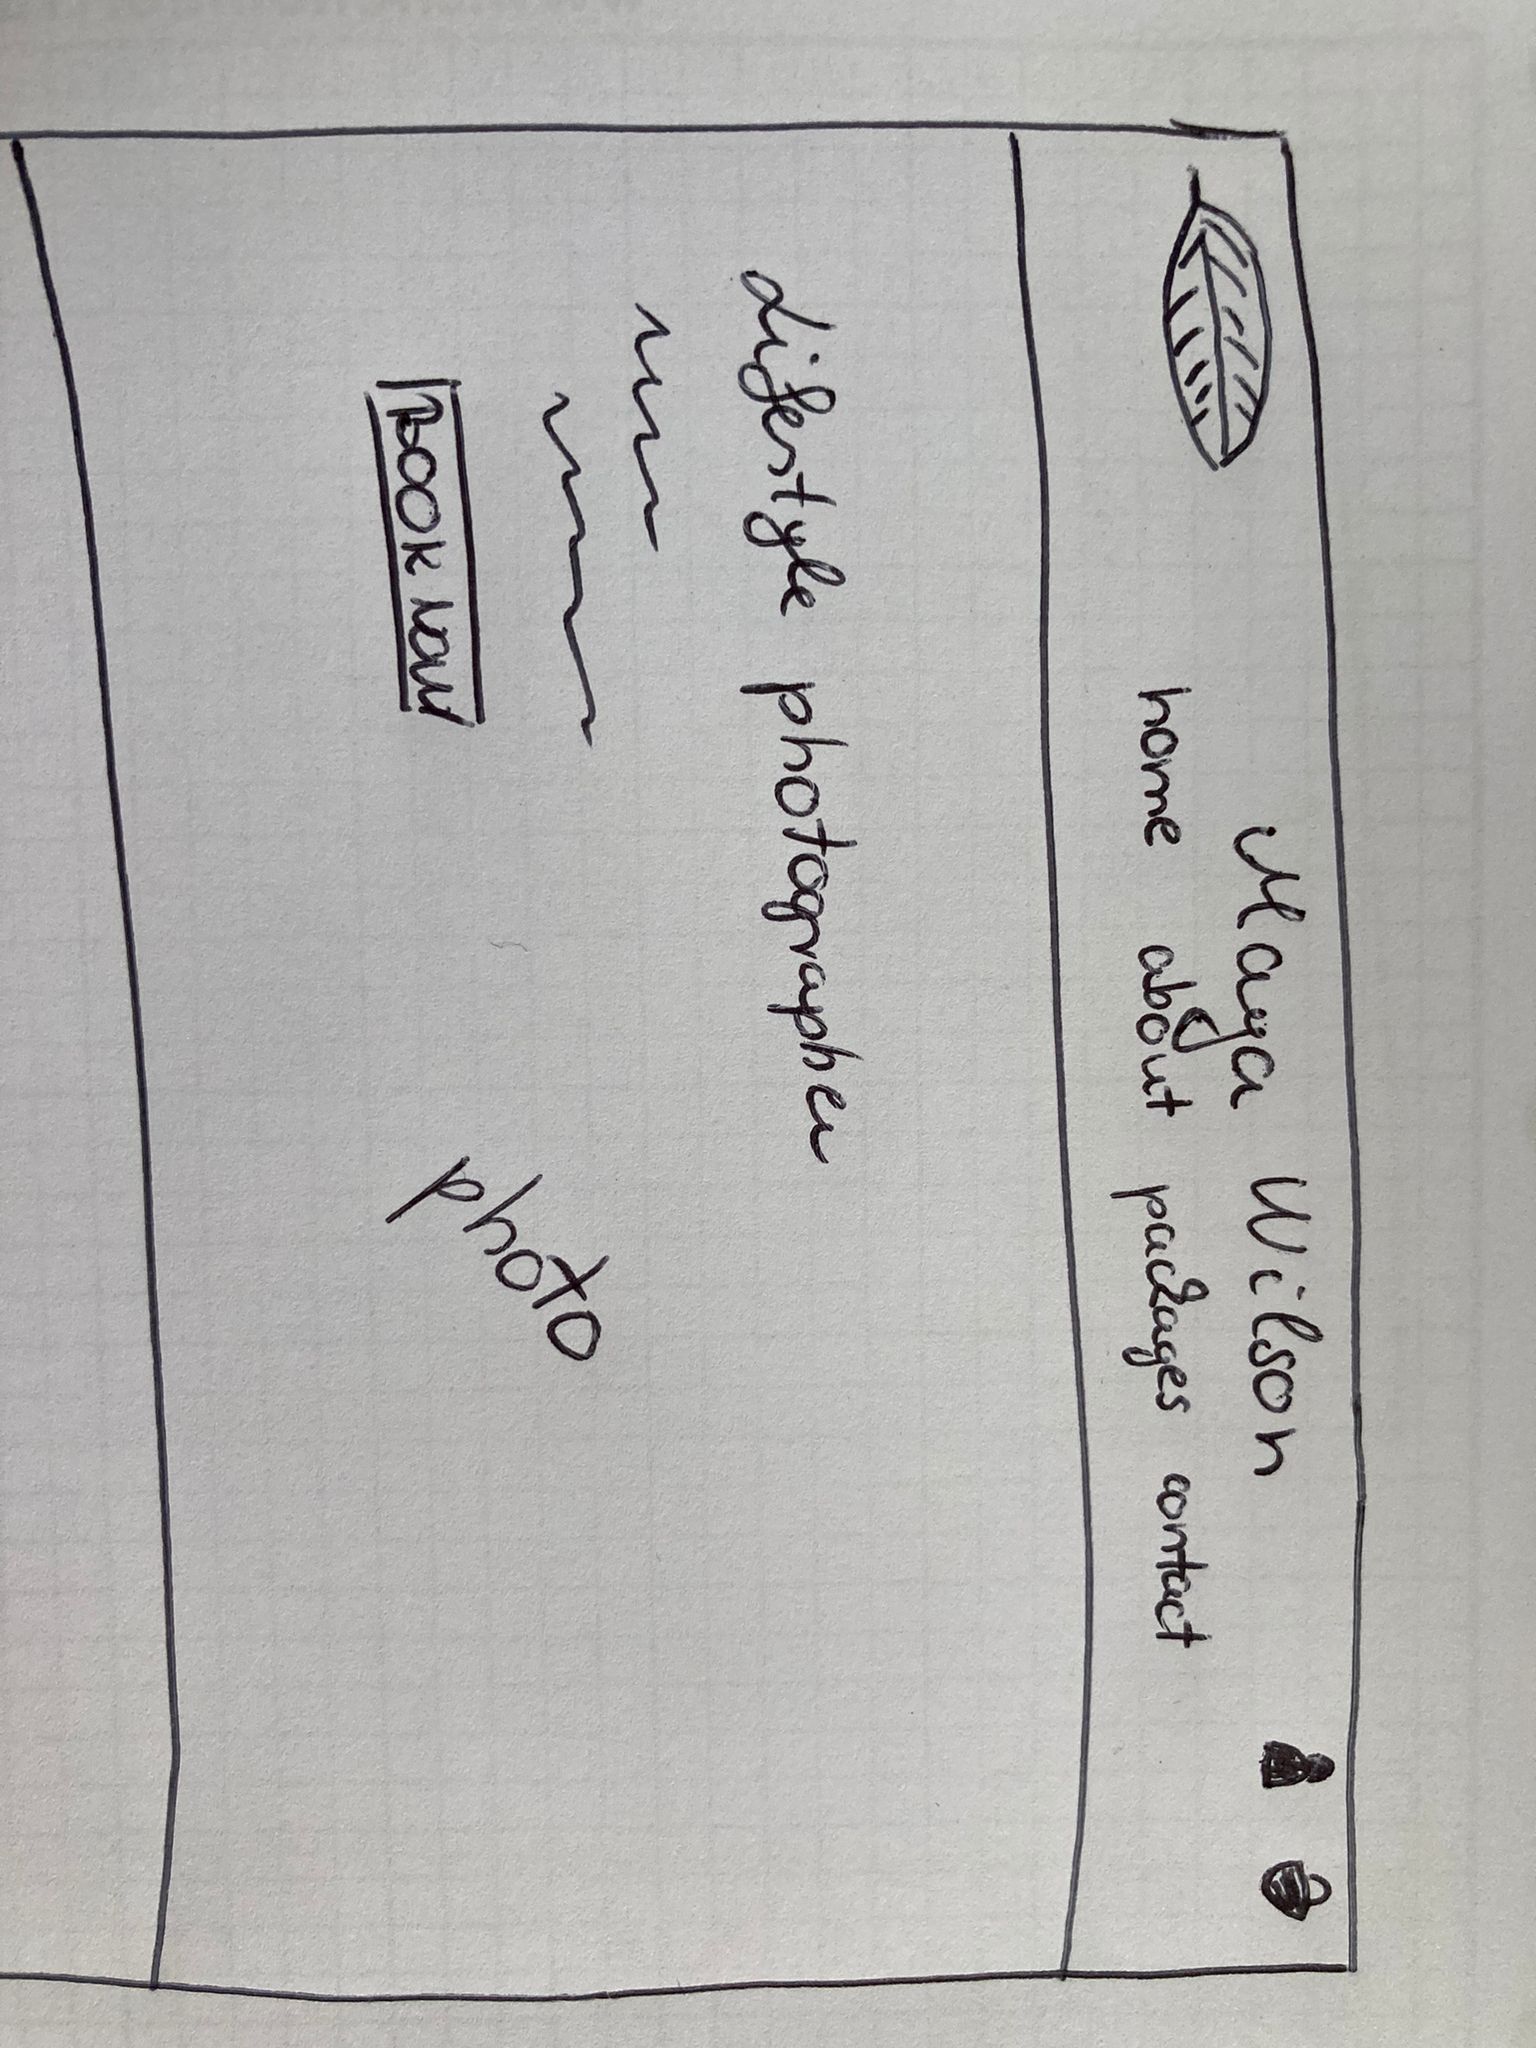 Maya Wilson
home about packages contact
lifestyle photographer
BOOK NOW
photo